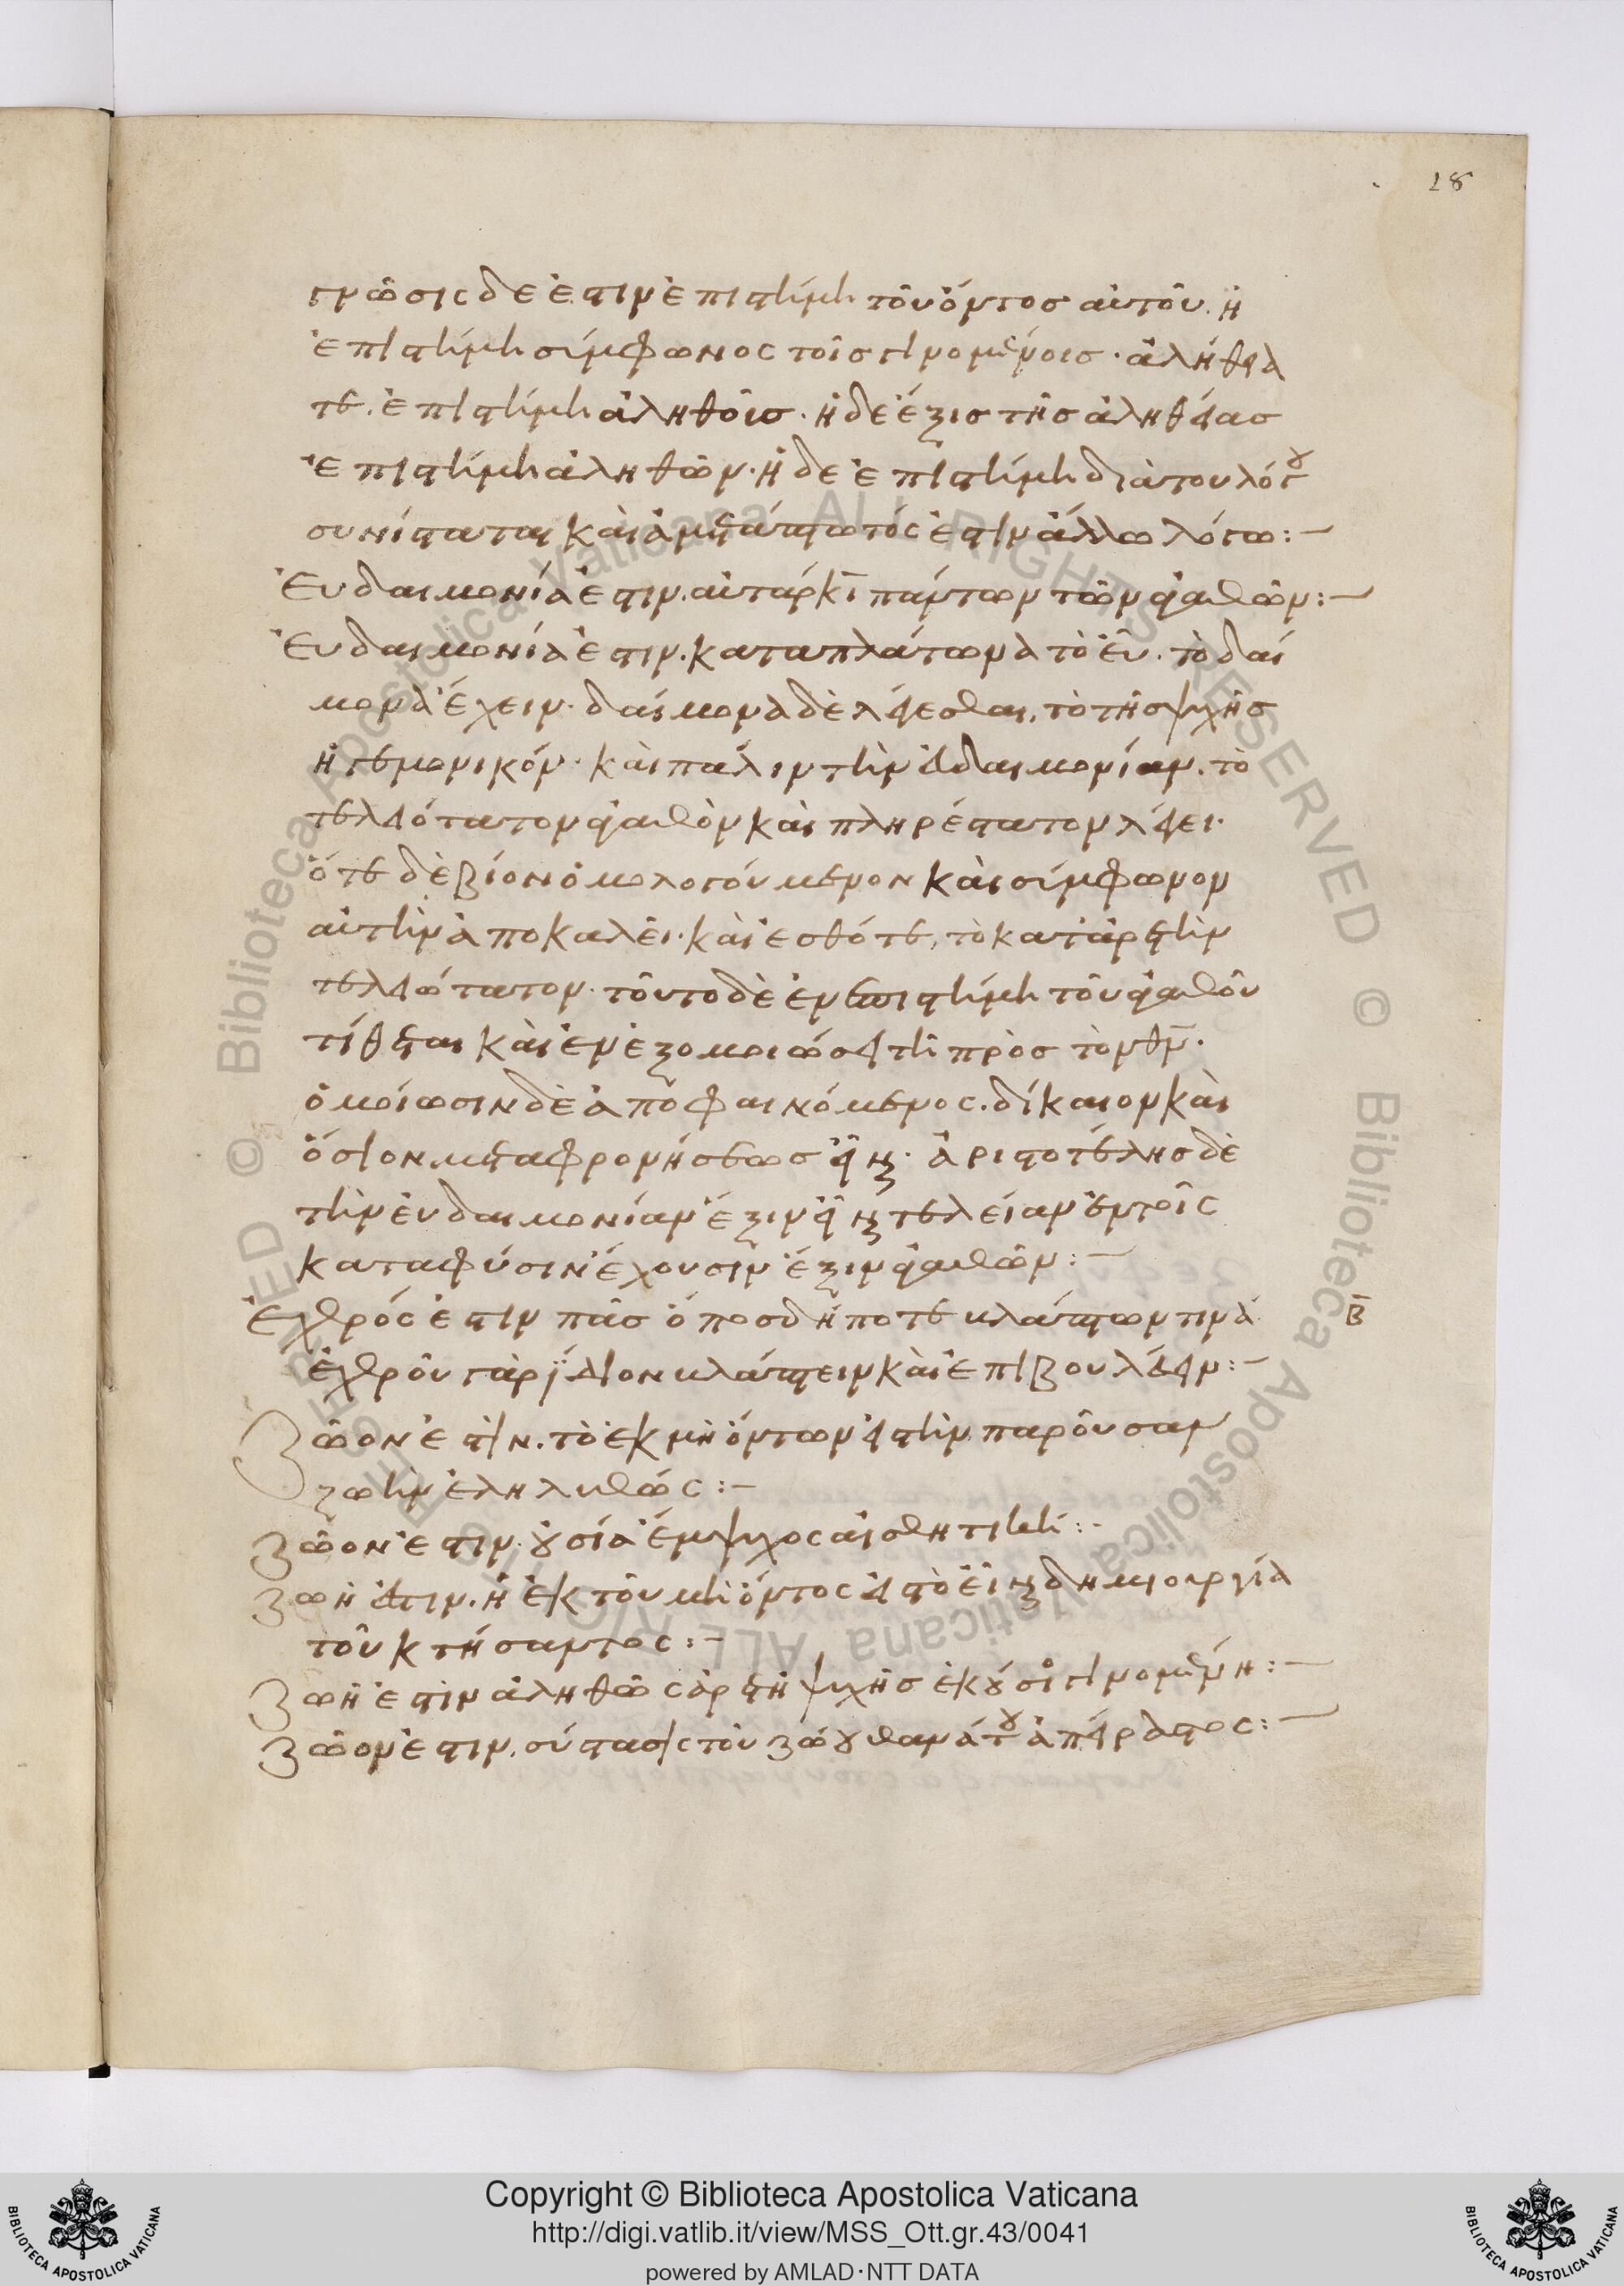 18
γνῶσις δὲ ἐστιν ἐπιστήμη τοῦ ὄντος αὐτοῦ. ἡ
ἐπιστήμη σύμφωνος τοῖς γινομένοις. ἀλήθεια
τε. ἐπιστήμη ἀληθοῦς. ἡ δὲ ἕξις τῆς ἀληθείας
ἐπιστήμη ἀληθῶν. ἡ δὲ ἐπιστήμη διὰ τοῦ λόγου
συνίσταται καὶ ἀμετάπτωτός ἐστιν ἄλλω λόγω:—
Ευδαιμονία ἐστιν. αὐτάρκη πάντων τῶν ἀγαθῶν:—
Ευδαιμονία ἐστιν. κατὰ πλάτωνα τὸ εὖ. τὸ δαί
μονα ἔχειν. δαίμονα δὲ λέγεσθαι, τὸ τῆς ψυχῆς
ἡγεμονικόν. καὶ πάλιν τὴν εὐδαιμονίαν. τὸ
τελειότατον ἀγαθὸν καὶ πληρέστατον λέγει.
ὅτε δὲ βίον ὁμολογούμενον καὶ σύμφωνον
αὐτὴν ἀποκαλεῖ. καὶ ἐσθότε, τὸ κατ' ἀρετὴν
τελειώτατον. τοῦτο δὲ ἐν ἐπιστήμη τοῦ ἀγαθοῦ
τίθεται καὶ ἐν ἐξομοιώσει τῆ πρὸς τὸν θν̄.
ὁμοίωσιν δὲ ἀποφαινόμενος. δίκαιον καὶ
ὅσιον μετὰ φρονήσεως εἶναι. ἀριστοτέλης δὲ
τὴν εὐδαιμονίαν ἕξιν εἶναι τελείαν ἐν τοῖς
κατὰ φύσιν ἔχουσιν ἕξιν ἀγαθῶν:—
Ἐχθρός ἐστιν πᾶς ὁποσδήποτε βλάπτων τινά Β̄
ἐχθροῦ γὰρ ἴδιον βλάπτειν καὶ ἐπιβουλεύειν:—
Ζῶον ἐστιν. τὸ ἐκ μὴ ὄντων εἰς τὴν παροῦσαν
ζωὴν ἐληλυθώς:—
Ζῶον ἐστιν. οὐσία ἔμψυχος αἰσθητική:—
Ζωή ἐστιν. ἡ ἐκ τοῦ μὴ ὄντος εἰς τὸ εἶναι δημιουργία
τοῦ κτήσαντος:—
Ζωὴ ἐστιν ἀληθῶς ἀρετὴ ψυχῆς ἑκουσίως γινομένη:—
Ζῶον ἐστιν. σύστασις τοῦ ζώου θανάτου ἀπείραστος:—
Copyright © Biblioteca Apostolica Vaticana
http://digi.vatlib.it/view/MSS_Ott.gr.43/0041
powered by AMLAD·NTT DATA